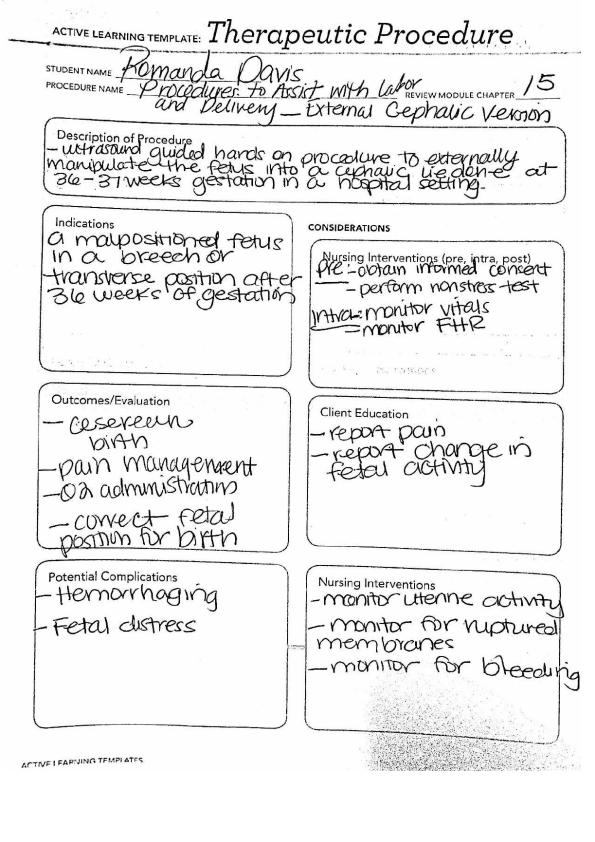 ACTIVE LEARNING TEMPLATE: Therapeutic Procedure
STUDENT NAME Romanda Davis
PROCEDURE NAME Procedures to Assist with Labor REVIEW MODULE CHAPTER 15
and Delivery – External Cephalic Version
Description of Procedure
- ultrasound guided hands on procedure to externally
manipulate the fetus into a cephalic lie done at
36-37 weeks gestation in a hospital setting.
Indications
a malpositioned fetus
in a breech or
transverse position after
36 weeks of gestation
CONSIDERATIONS
Nursing Interventions (pre, intra, post)
pre: -obtain informed consent
- perform nonstress test
Intra: -monitor vitals
-monitor FHR
Outcomes/Evaluation
- cesereen
birth
-pain management
-O2 administration
- correct fetal
position for birth
Client Education
-report pain
-report change in
fetal activity
Potential Complications
- Hemorrhaging
- Fetal distress
Nursing Interventions
-monitor uterine activity
- monitor for ruptured
membranes
-monitor for bleeding
ACTIVE LEARNING TEMPLATES